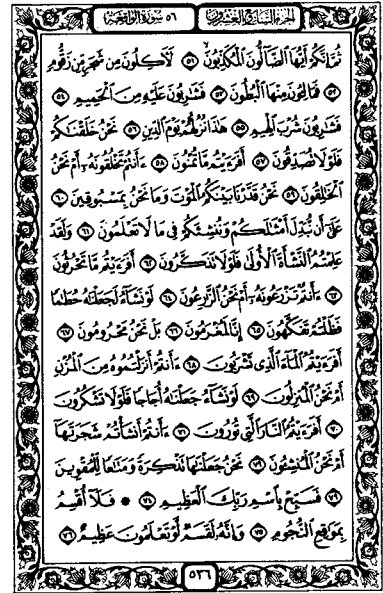 الجزء السابع والعشرون ٥٦ سورة الواقعة
ثم إنكم أيها الضالون المكذبون ٥١ لآكلون من شجر من زقوم
٥٢ فمالئون منها البطون ٥٣ فشاربون عليه من الحميم ٥٤
فشاربون شرب الهيم ٥٥ هذا نزلهم يوم الدين ٥٦ نحن خلقناكم
فلولا تصدقون ٥٧ أفرءيتم ما تمنون ٥٨ ءأنتم تخلقونه أم نحن
الخالقون ٥٩ نحن قدرنا بينكم الموت وما نحن بمسبوقين ٦٠
على أن نبدل أمثالكم وننشئكم في ما لا تعلمون ٦١ ولقد
علمتم النشأة الأولى فلولا تذكرون ٦٢ أفرءيتم ما تحرثون
٦٣ ءأنتم تزرعونه أم نحن الزارعون ٦٤ لو نشاء لجعلناه حطاما
فظلتم تفكهون ٦٥ إنا لمغرمون ٦٦ بل نحن محرومون ٦٧
أفرءيتم الماء الذي تشربون ٦٨ ءأنتم أنزلتموه من المزن
أم نحن المنزلون ٦٩ لو نشاء جعلناه أجاجا فلولا تشكرون
٧٠ أفرءيتم النار التي تورون ٧١ ءأنتم أنشأتم شجرتها
أم نحن المنشئون ٧٢ نحن جعلناها تذكرة ومتاعا للمقوين
٧٣ فسبح باسم ربك العظيم ٧٤ * فلا أقسم
بمواقع النجوم ٧٥ وإنه لقسم لو تعلمون عظيم ٧٦
٥٣٦